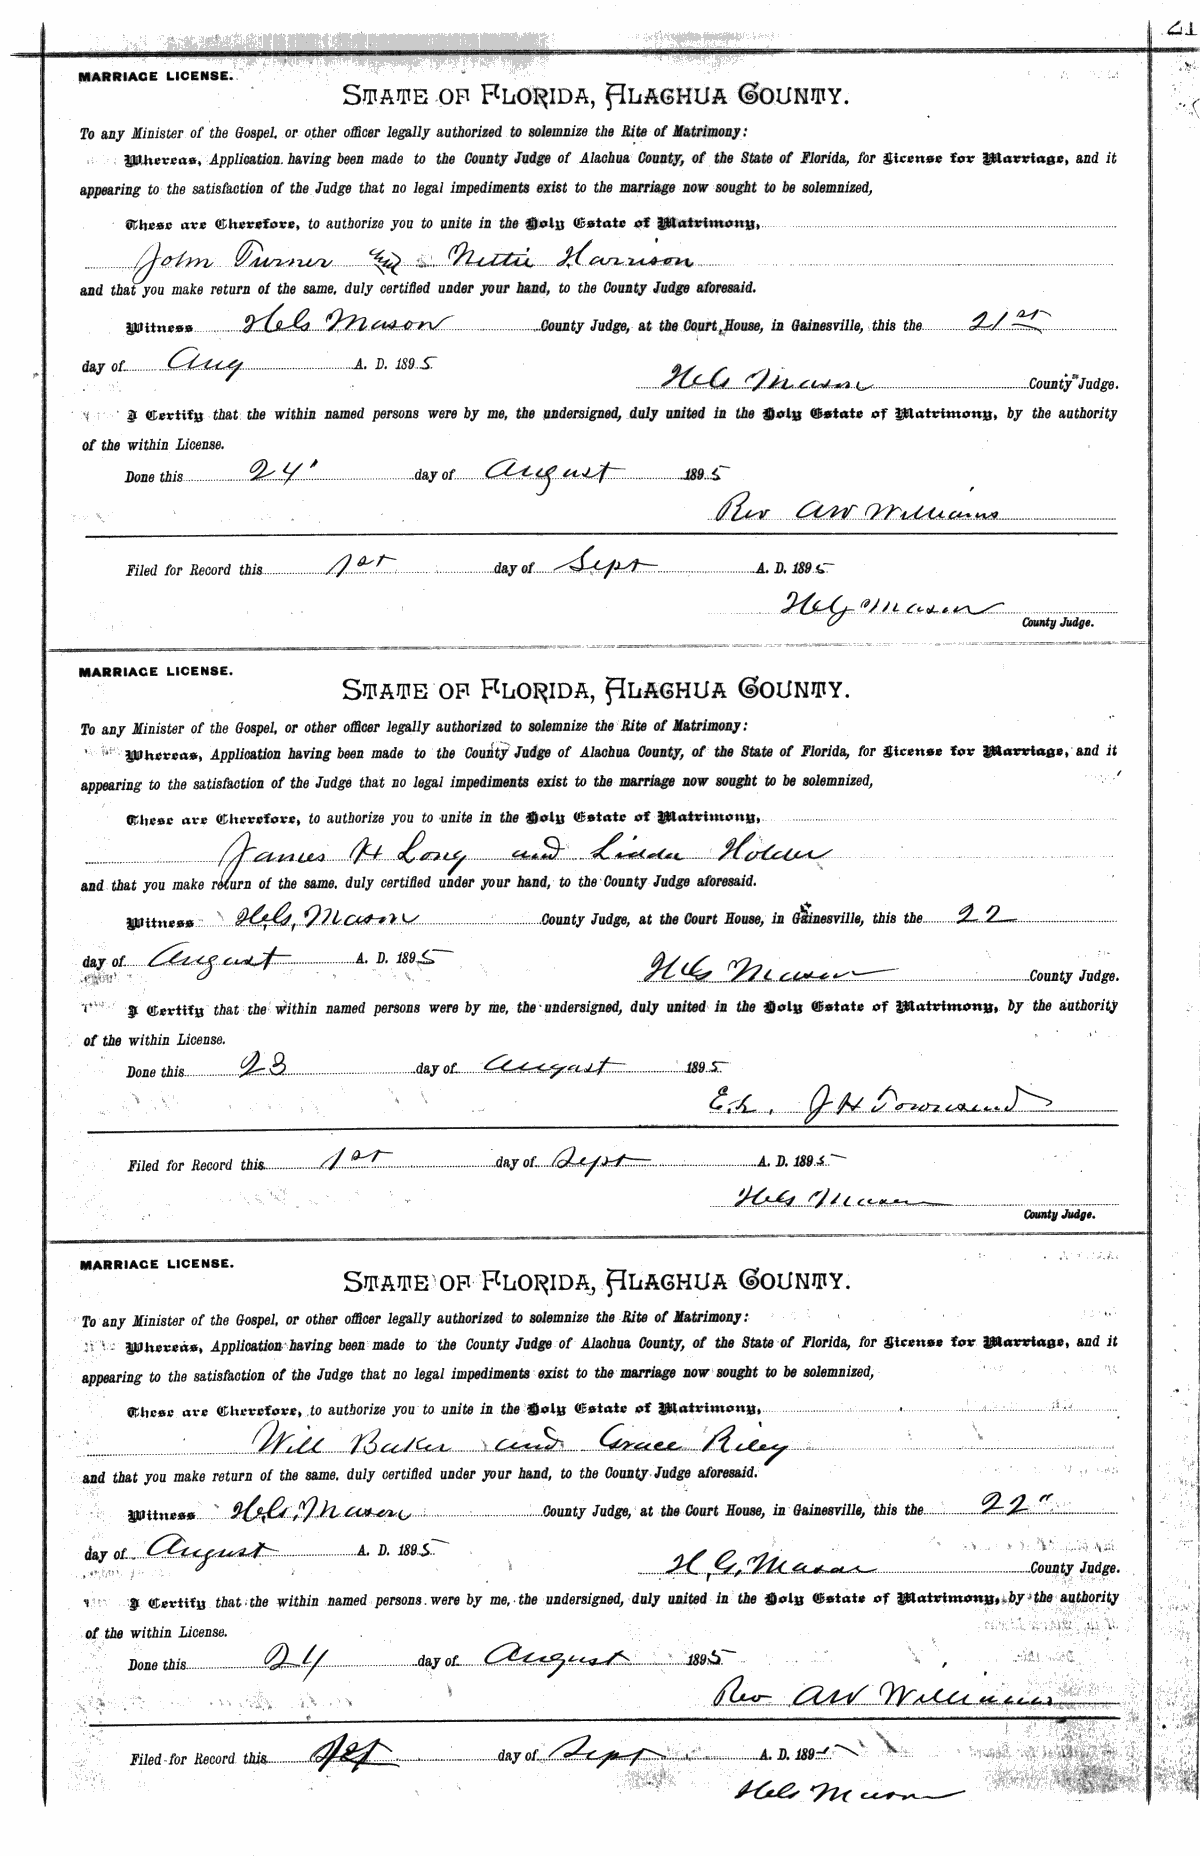 MARRIAGE LICENSE.
STATE OF FLORIDA, ALACHUA COUNTY.
To any Minister of the Gospel, or other officer legally authorized to solemnize the Rite of Matrimony:
Whereas, Application having been made to the County Judge of Alachua County, of the State of Florida, for License for Marriage, and it
appearing to the satisfaction of the Judge that no legal impediments exist to the marriage now sought to be solemnized,
These are Therefore, to authorize you to unite in the Holy Estate of Matrimony,
John Turner and Nettie Harrison
and that you make return of the same, duly certified under your hand, to the County Judge aforesaid.
Witness H.G. Mason County Judge, at the Court House, in Gainesville, this the 21st
day of Aug A. D. 1895
H.G. Mason County Judge.
I Certify that the within named persons were by me, the undersigned, duly united in the Holy Estate of Matrimony, by the authority
of the within License.
Done this 24" day of August 1895
Rev AW Williams
Filed for Record this 1st day of Sept A. D. 1895
H.G. Mason
County Judge.
MARRIAGE LICENSE.
STATE OF FLORIDA, ALACHUA COUNTY.
To any Minister of the Gospel, or other officer legally authorized to solemnize the Rite of Matrimony:
Whereas, Application having been made to the County Judge of Alachua County, of the State of Florida, for License for Marriage, and it
appearing to the satisfaction of the Judge that no legal impediments exist to the marriage now sought to be solemnized,
These are Therefore, to authorize you to unite in the Holy Estate of Matrimony,
James H Long and Lidda Holder
and that you make return of the same, duly certified under your hand, to the County Judge aforesaid.
Witness H.G. Mason County Judge, at the Court House, in Gainesville, this the 22
day of August A. D. 1895
H.G. Mason County Judge.
I Certify that the within named persons were by me, the undersigned, duly united in the Holy Estate of Matrimony, by the authority
of the within License.
Done this 23 day of August 1895
J H Townsend
Filed for Record this 1st day of Sept A. D. 1895
H.G. Mason
County Judge.
MARRIAGE LICENSE.
STATE OF FLORIDA, ALACHUA COUNTY.
To any Minister of the Gospel, or other officer legally authorized to solemnize the Rite of Matrimony:
Whereas, Application having been made to the County Judge of Alachua County, of the State of Florida, for License for Marriage, and it
appearing to the satisfaction of the Judge that no legal impediments exist to the marriage now sought to be solemnized,
These are Therefore, to authorize you to unite in the Holy Estate of Matrimony,
Will Baker and Grace Riley
and that you make return of the same, duly certified under your hand, to the County Judge aforesaid.
Witness H.G. Mason County Judge, at the Court House, in Gainesville, this the 22"
day of August A. D. 1895
H.G. Mason County Judge.
I Certify that the within named persons were by me, the undersigned, duly united in the Holy Estate of Matrimony, by the authority
of the within License.
Done this 24 day of August 1895
Rev AW Williams
Filed for Record this 1st day of Sept A. D. 1895
H.G. Mason